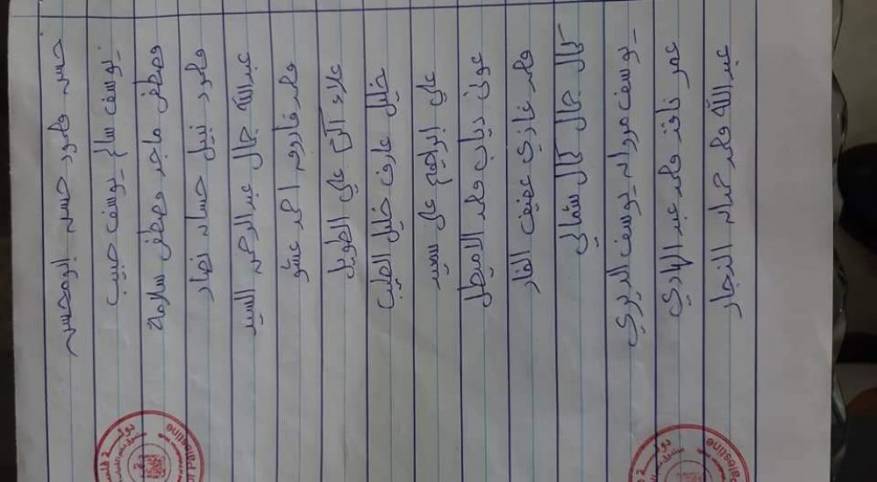 حسن محمود حسن ابو محسن
يوسف سالم يوسف حبيب
مصطفى ماجد مصطفى سلامة
محمود نبيل حسان نصار
عبدالله جمال عبدالرحمن السيد
محمد فاروق احمد عشو
علاء علي الطويل
خليل عارف خليل الطيب
علي ابراهيم علي سعيد
عوني ذياب محمد الاسطل
محمد غازي عفيف الفار
كمال جمال كمال شمالي
يوسف مروان يوسف الديري
عمر نافذ محمد عبد الهادي
عبدالله محمد حسان النجار
دولة
Palestine
دولة
Palestine